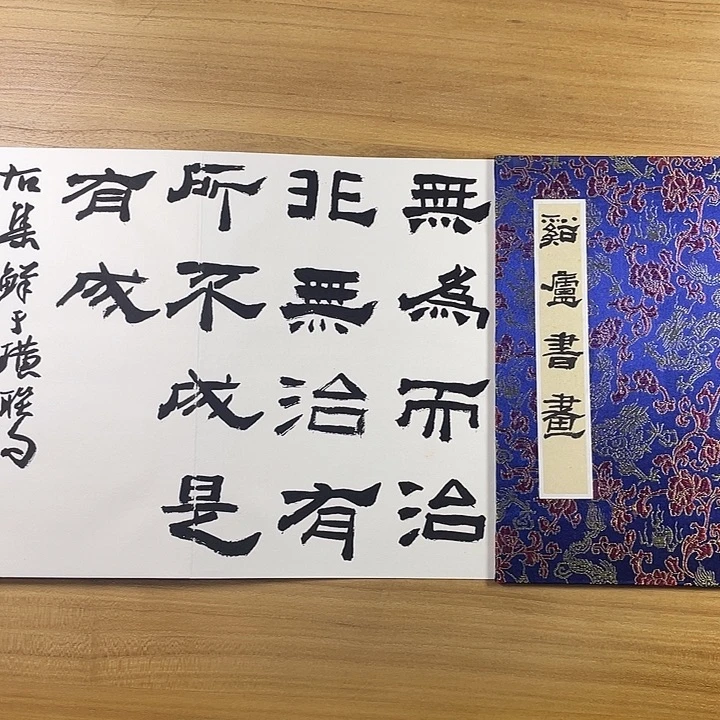 谿廬書畫
無為而治
非無治有
所不成是
有成
右集鮮于璜聯句